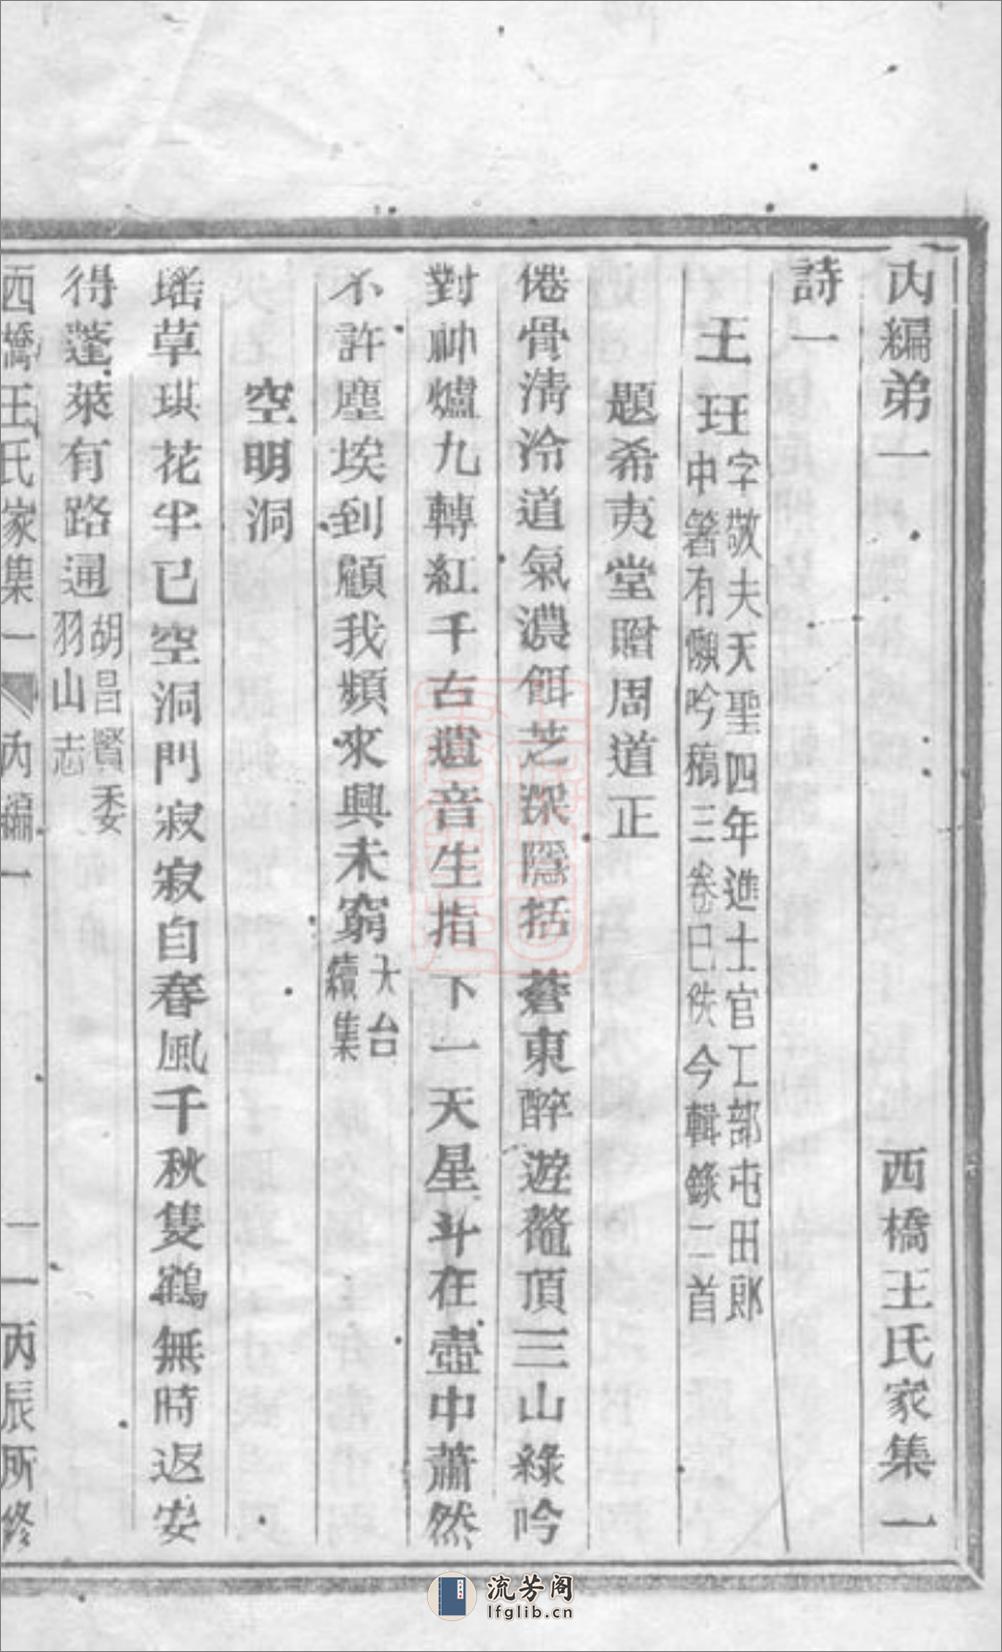 內編弟一 西橋王氏家集一
詩一
王玨字敬夫天聖四年進士官工部屯田郎
中箸有懶吟稿三卷已佚今輯錄二首
題希夷堂贈周道正
倦骨清泠道氣濃餌芝深隱括蒼東醉遊鼇頂三山綠吟
對神爐九轉紅千古遺音生指下一天星斗在壺中蕭然
不許塵埃到顧我頻來興未窮天台
續集
空明洞
瑤草琪花半已空洞門寂寂自春風千秋隻鶴無時返安
得蓬萊有路通胡昌賢委
羽山志
西橋王氏家集一 內編一 一 丙辰所修
流芳阁
lfglib.cn